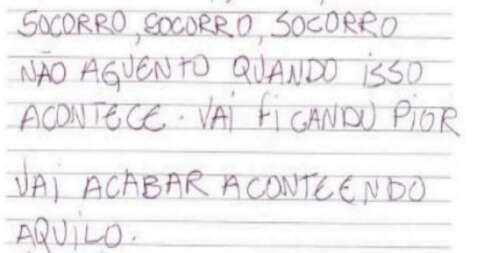 SOCORRO, SOCORRO, SOCORRO
NÃO AGUENTO QUANDO ISSO
ACONTECE. VAI FICANDU PIOR
VAI ACABAR ACONTEENDO
AQUILO.